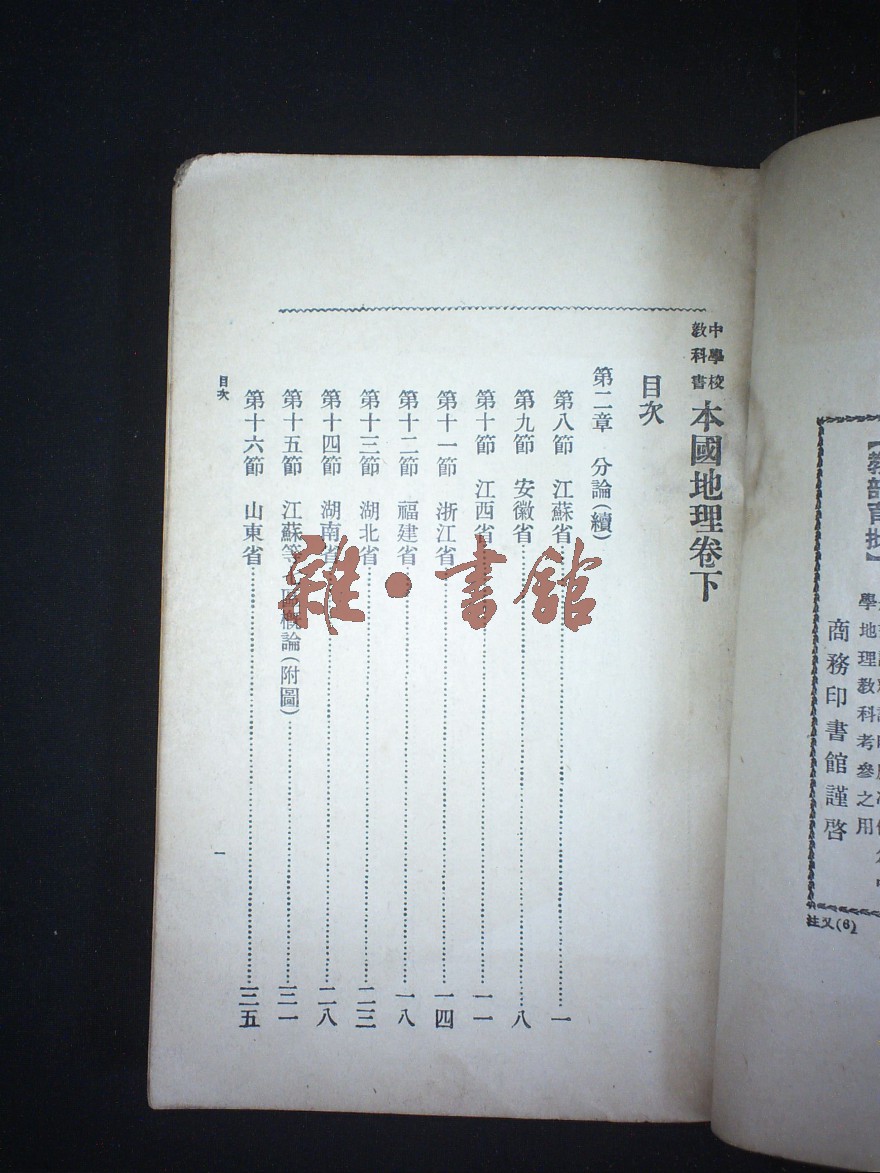 中學校
教科書
本國地理卷下
目次
第二章　分論(續)
第八節　江蘇省……一
第九節　安徽省……八
第十節　江西省……一一
第十一節　浙江省……一四
第十二節　福建省……一八
第十三節　湖北省……二三
第十四節　湖南省……二八
第十五節　江蘇等七區概論(附圖)……三一
第十六節　山東省……三五
目次
一
雜·書館
學地理教科考參之用
商務印書館謹啓
註父(6)